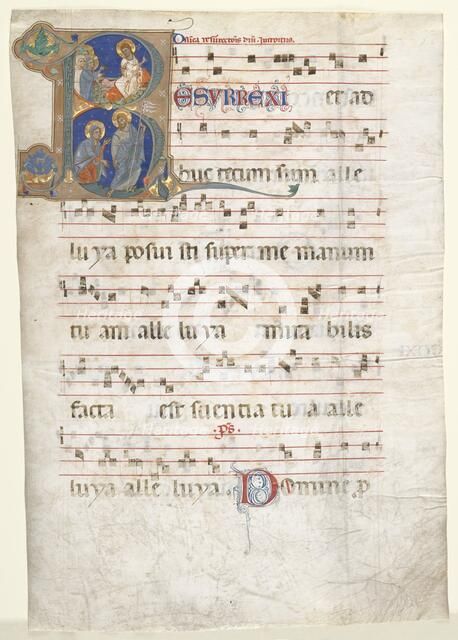 Dnica resurrectõis dñi Introitus.
RESURREXI et ad
huc tecum sum alle
lu ya posui sti super me manum
tu am alle lu ya mira bilis
facta est scientia tu a alle
.ps.
lu ya alle lu ya. Domine p
Heritage